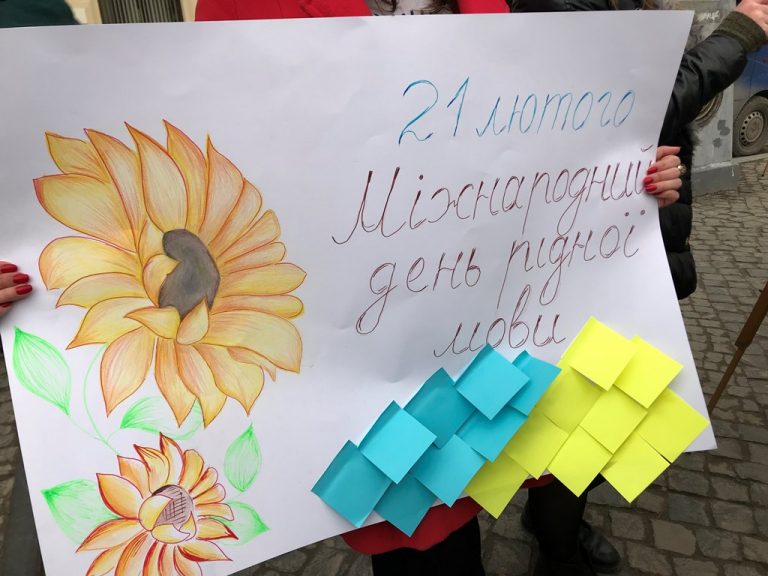 21 лютого
Міжнародний
день рідної
мови